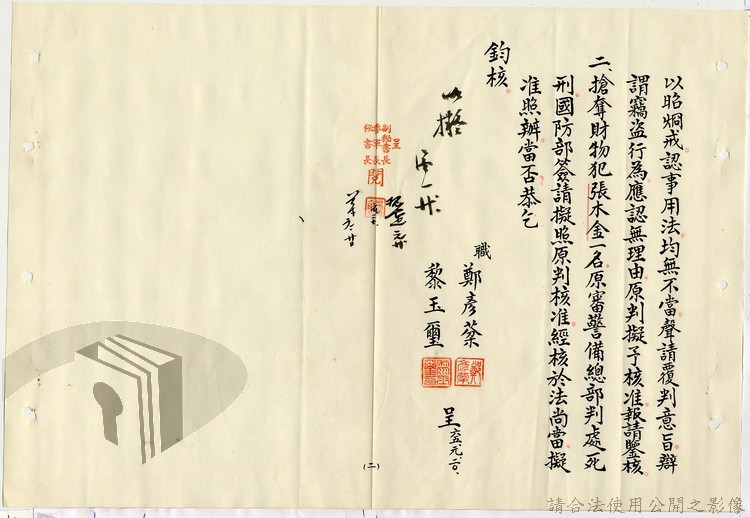 以昭烱戒認事用法均無不當聲請覆判意旨辯
謂竊盜行為應認無理由原判擬予核准報請鑒核
二、搶奪財物犯張木金一名原審警備總部判處死
刑國防部簽請擬照原判核准經核於法尚當擬
准照辦當否恭乞
鈞核
職 鄭彥棻
黎玉璽
呈 六五、元、二〇、
如擬
呈
副秘書長
參軍長
秘書長
閱
(二)
請合法使用公開之影像